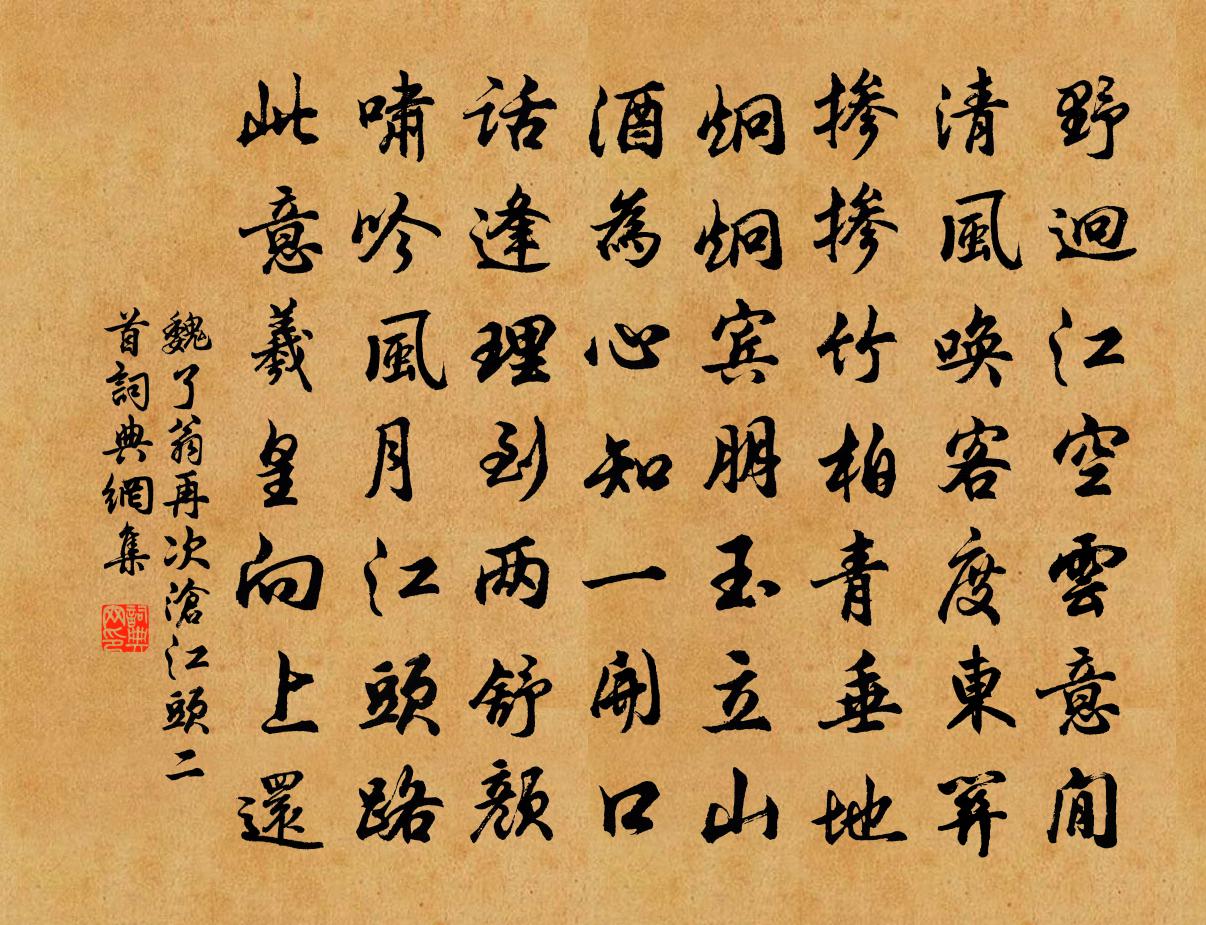 野迴江空雲意閒
清風喚客度東關
摻摻竹柏青垂地
炯炯宾朋玉立山
酒為心知一開口
話逢理到两舒顏
嘯吟風月江頭路
此意羲皇向上還
魏了翁再次滄江頭二
首詞典網集
詞典网印